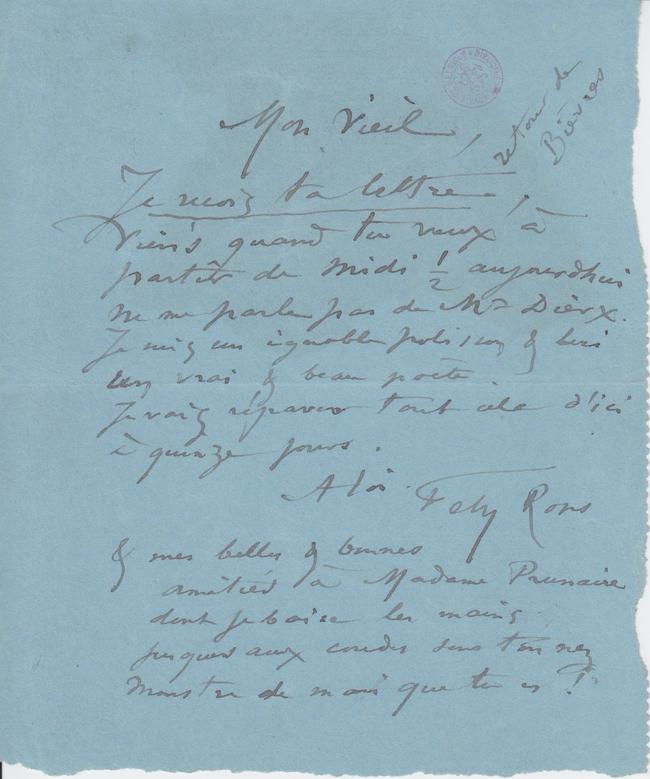 retour de
Bièvres
Mon Vieil,
Je reçois ta lettre,
Viens quand tu veux à
partir de midi ½ aujourdhui
ne me parle pas de Mr Dièrx.
Je suis un ignoble polisson & lui
un vrai & beau poète.
Je vais réparer tout cela d'ici
à quinze jours.
A toi Fély Rops
& mes belles & bonnes
amitiés à Madame Prunaire
dont je baise les mains
jusques aux coudes sous ton nez
monstre de mari que tu es !